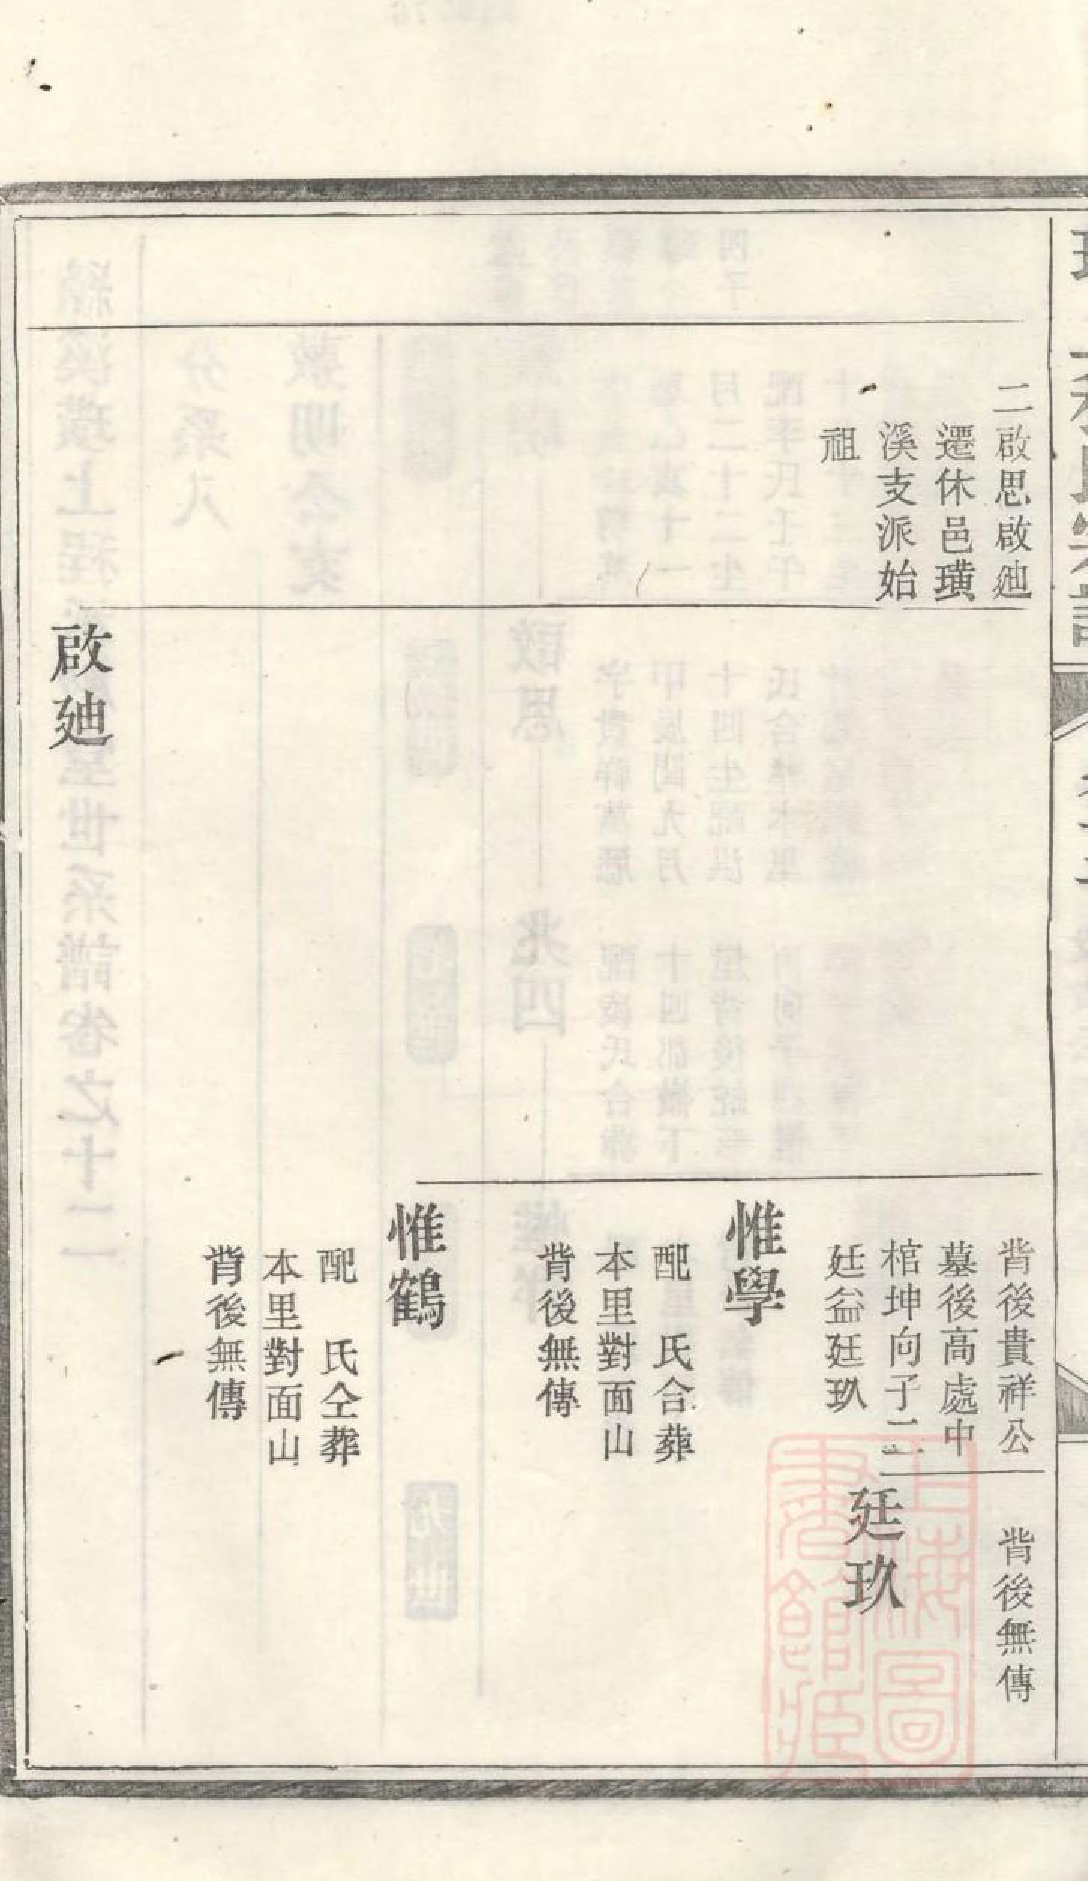 二啟思啟廸
遷休邑璜
溪支派始
祖
啟廸
背後貴祥公
墓後高處中
棺坤向子二
廷益廷玖
惟學
配　氏合葬
本里對面山
背後無傳
惟鶴
配　氏仝葬
本里對面山
背後無傳
背後無傳
廷玖
上海圖書館藏